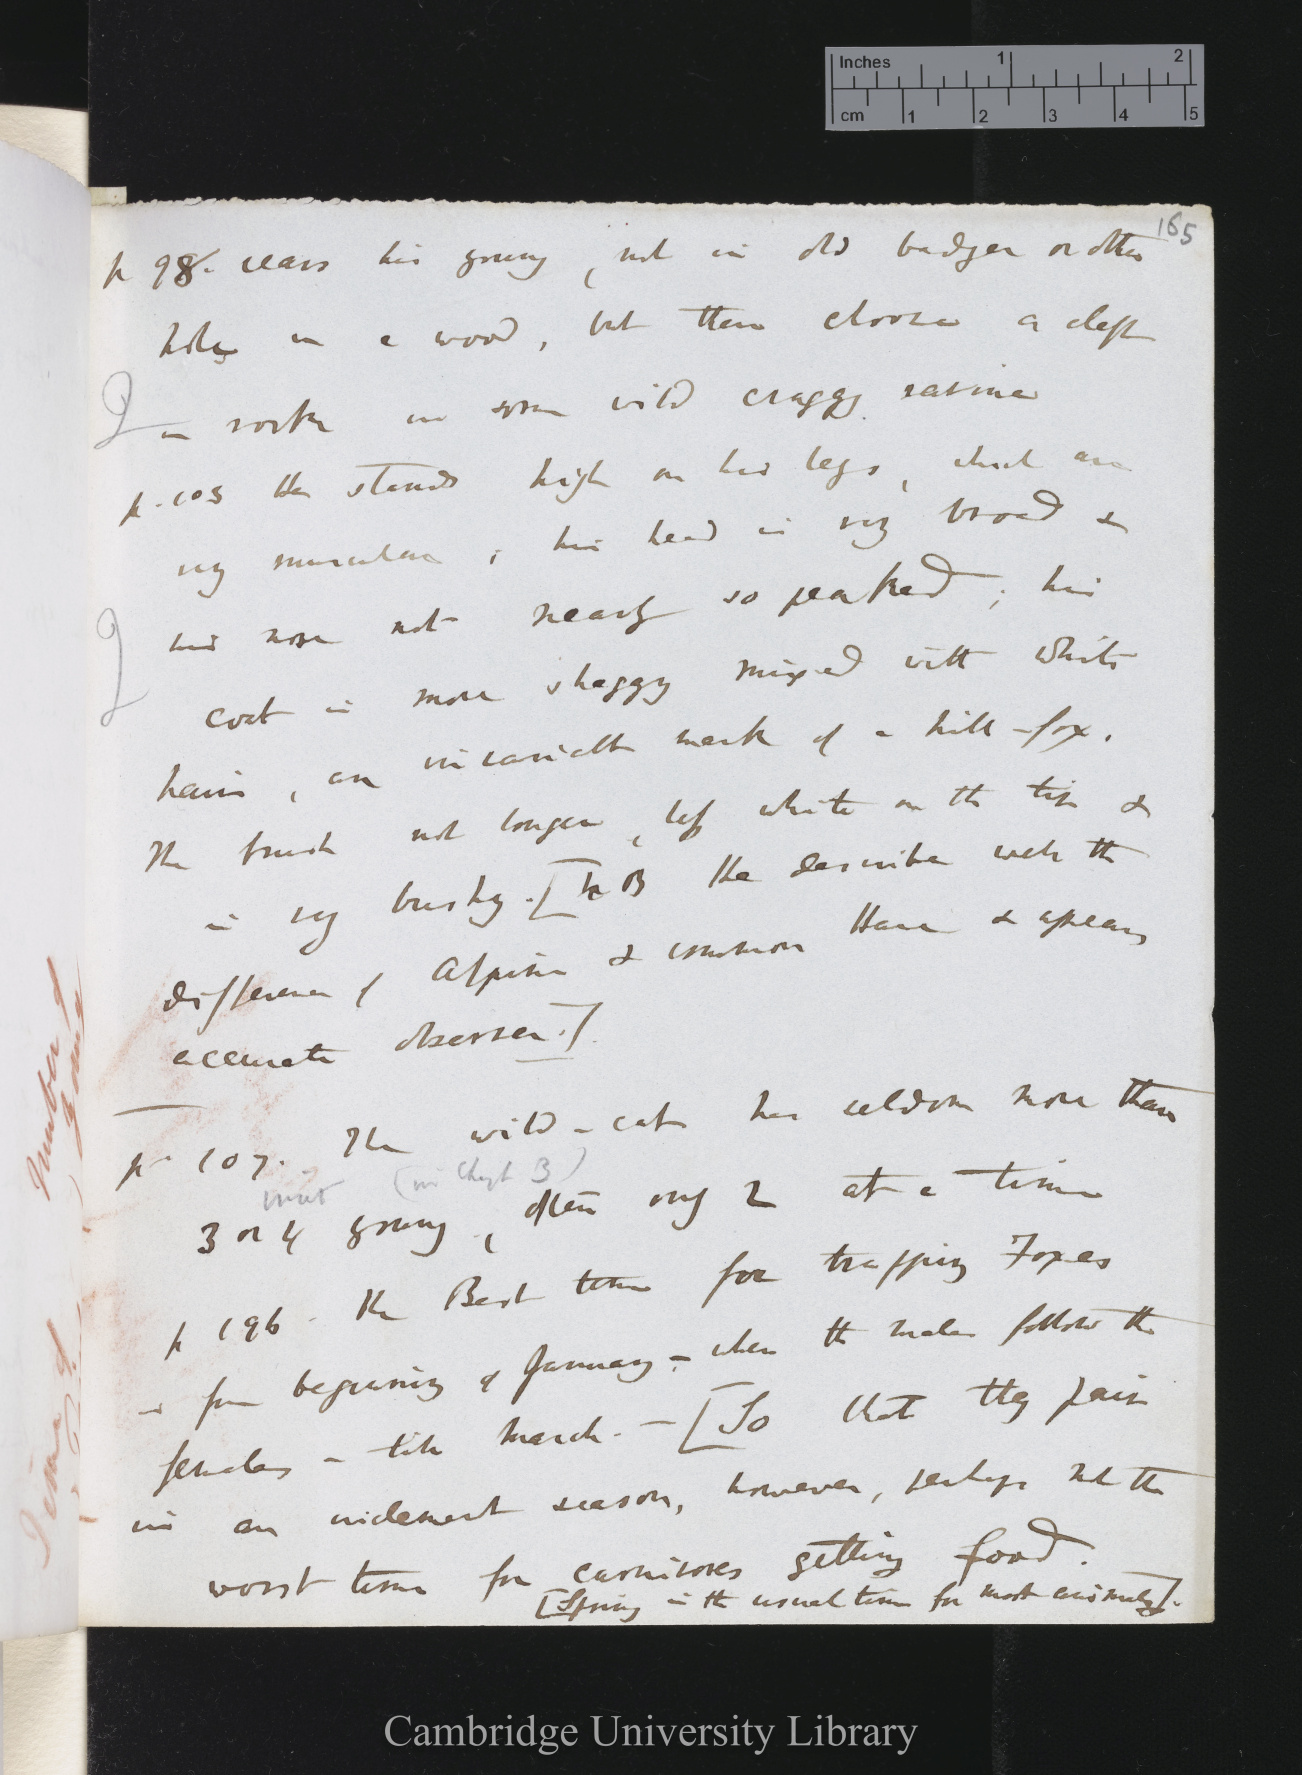 Inches 1 2
cm 1 2 3 4 5
165
p 98. rears his young, not in old badger or other
holes in a wood, but then chooses a cleft
in rocks in some wild craggy ravine
p. 103 He stands high on his legs, which are
very muscular; his head is very broad &
his nose not nearly so peaked; his
coat is more shaggy mixed with white
hairs, an invariable mark of a hill-fox.
The brush not longer, less white on the tip &
is very bushy. [NB He describes well the
difference of Alpine & common Hare & appears
accurate observer.]
p. 107. The wild-cat has seldom more than
(in Chapt 3)
3 or 4 young, often only 2 at a time
p 196. The Best time for trapping Foxes
is from beginning of January – when the males follow the
females – till March. – [So that they pair
in an inclement season, however, perhaps not the
worst time for carnivores getting food.
[Spring is the usual time for most animals].
Number of
young
Time of
Cambridge University Library